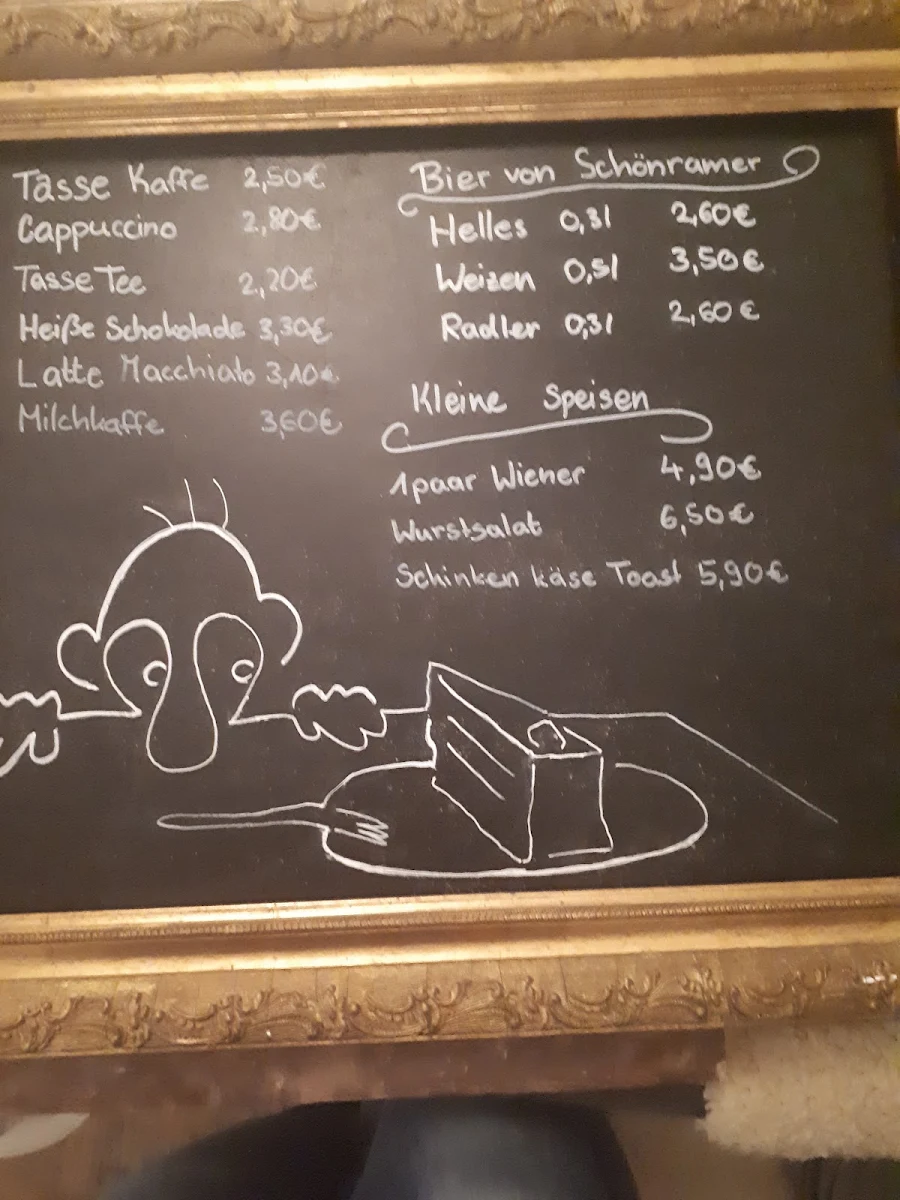 Tasse Kaffe 2,50€
Cappuccino 2,80€
Tasse Tee 2,20€
Heiße Schokolade 3,30€
Latte Macchiato 3,10€
Milchkaffe 3,60€
Bier von Schönramer
Helles 0,3l 2,60€
Weizen 0,5l 3,50€
Radler 0,3l 2,60€
Kleine Speisen
1paar Wiener 4,90€
Wurstsalat 6,50€
Schinken käse Toast 5,90€